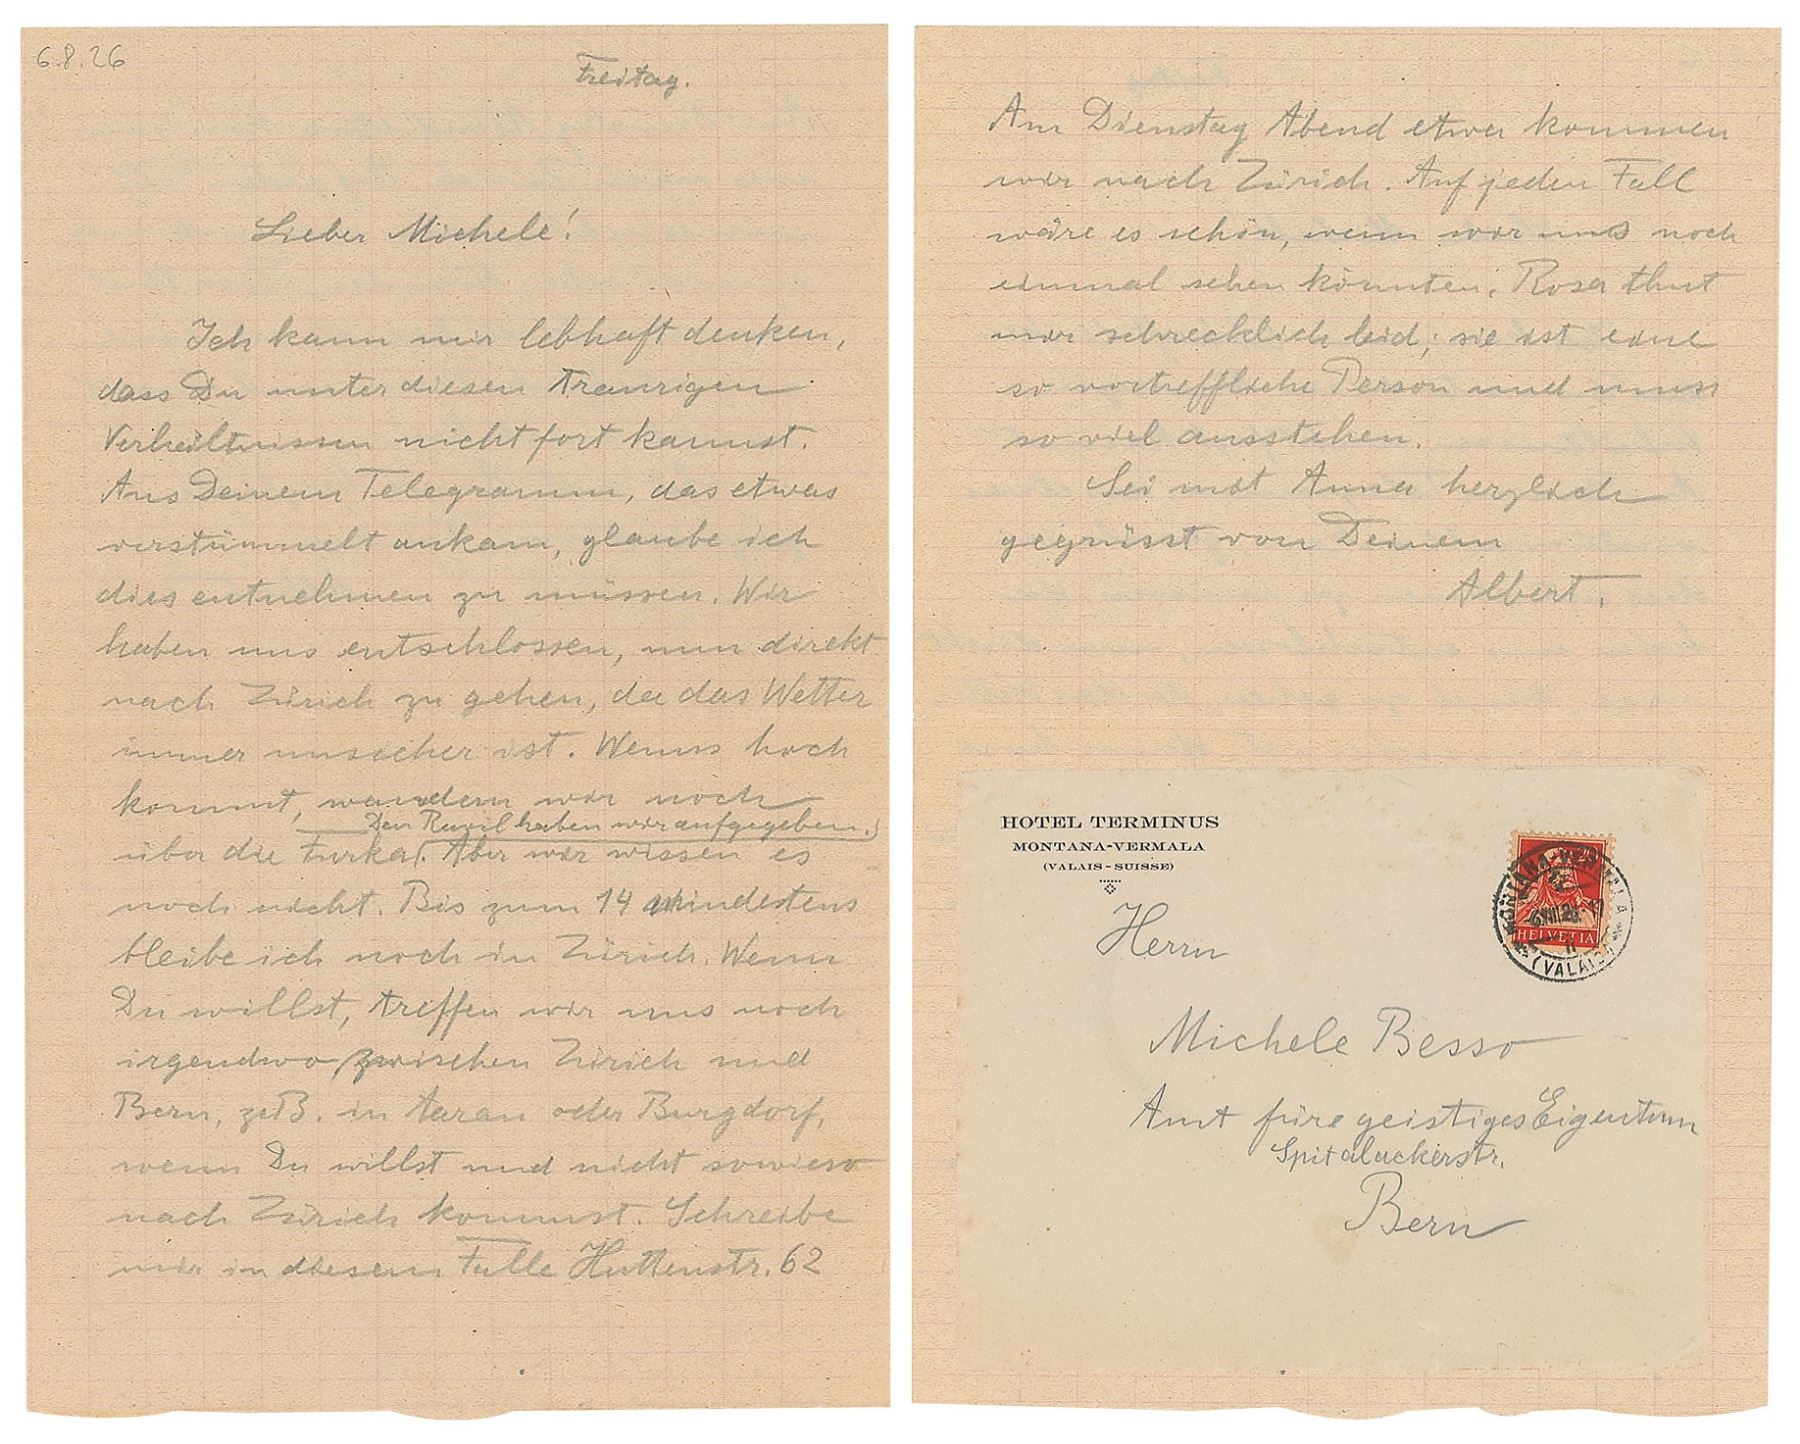 6.8.26
Freitag.
Lieber Michele!
Ich kann mir lebhaft denken,
dass Du unter diesen traurigen
Verhältnissen nicht fort kannst.
Aus Deinem Telegramm, das etwas
verstümmelt ankam, glaube ich
dies entnehmen zu müssen. Wir
haben uns entschlossen, nun direkt
nach Zürich zu gehen, da das Wetter
immer unsicher ist. Wenns hoch
kommt, wandern wir noch
Den Rawil haben wir aufgegeben.)
über die Furka(. Aber wir wissen es
noch nicht. Bis zum 14 mindestens
bleibe ich noch in Zürich. Wenn
Du willst, treffen wir uns noch
irgendwo zwischen Zürich und
Bern, z.B. in Aarau oder Burgdorf,
wenn Du willst und nicht sowieso
nach Zürich kommst. Schreibe
mir in diesem Falle Huttenstr. 62
Am Dienstag Abend etwa kommen
wir nach Zürich. Auf jeden Fall
wäre es schön, wenn wir uns noch
einmal sehen könnten. Rosa thut
mir schrecklich leid; sie ist eine
so vortreffliche Person und muss
so viel ausstehen.
Sei mit Anna herzlich
gegrüsst von Deinem
Albert.
HOTEL TERMINUS
MONTANA-VERMALA
(VALAIS - SUISSE)
HELVETIA
(VALAIS)
Herrn
Michele Besso
Amt für geistiges Eigentum
Spitalackerstr.
Bern